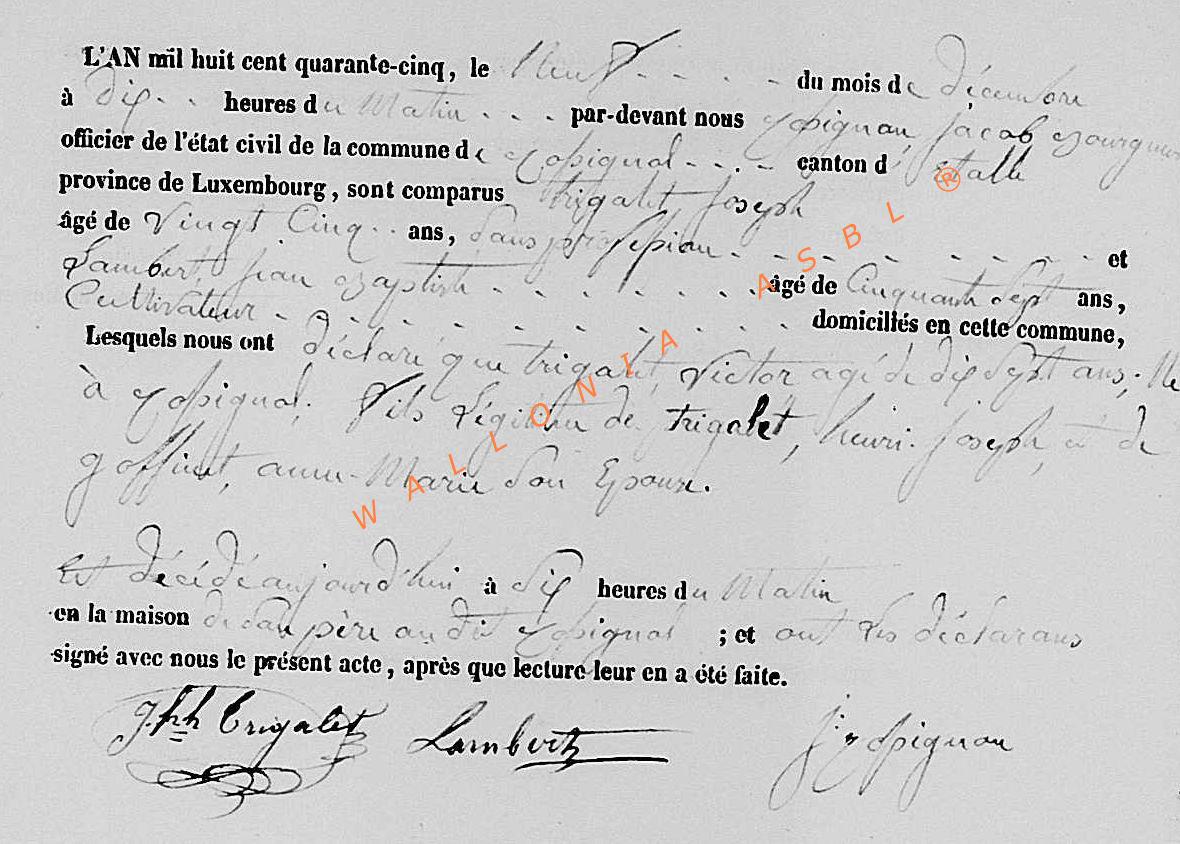 L'AN mil huit cent quarante-cinq, le Neuf - - - - du mois de décembre
à dix - - heures du Matin - - - par-devant nous jacob
officier de l'état civil de la commune de - - - canton d' Etalle
province de Luxembourg, sont comparus trigalet Joseph
âgé de Vingt Cinq - - ans, Sans profession - - - - - - - - et
Lambert, jean Baptiste - - - - - - - âgé de Cinquante Sept ans,
Cultivateur - - - - - - - - - - - domiciliés en cette commune,
Lesquels nous ont déclaré que trigalet, Victor agé de dix Sept ans, Né
à fils Légitime de trigalet, henri Joseph, et de
goffinet, anne-Marie Son Epouse.
Est décédé aujourd'hui à dix heures du Matin
en la maison de Son père au dit ; et ont Les déclarans
signé avec nous le présent acte, après que lecture leur en a été faite.
Jph Trigalet Lambert
WALLONIA ASBL ®